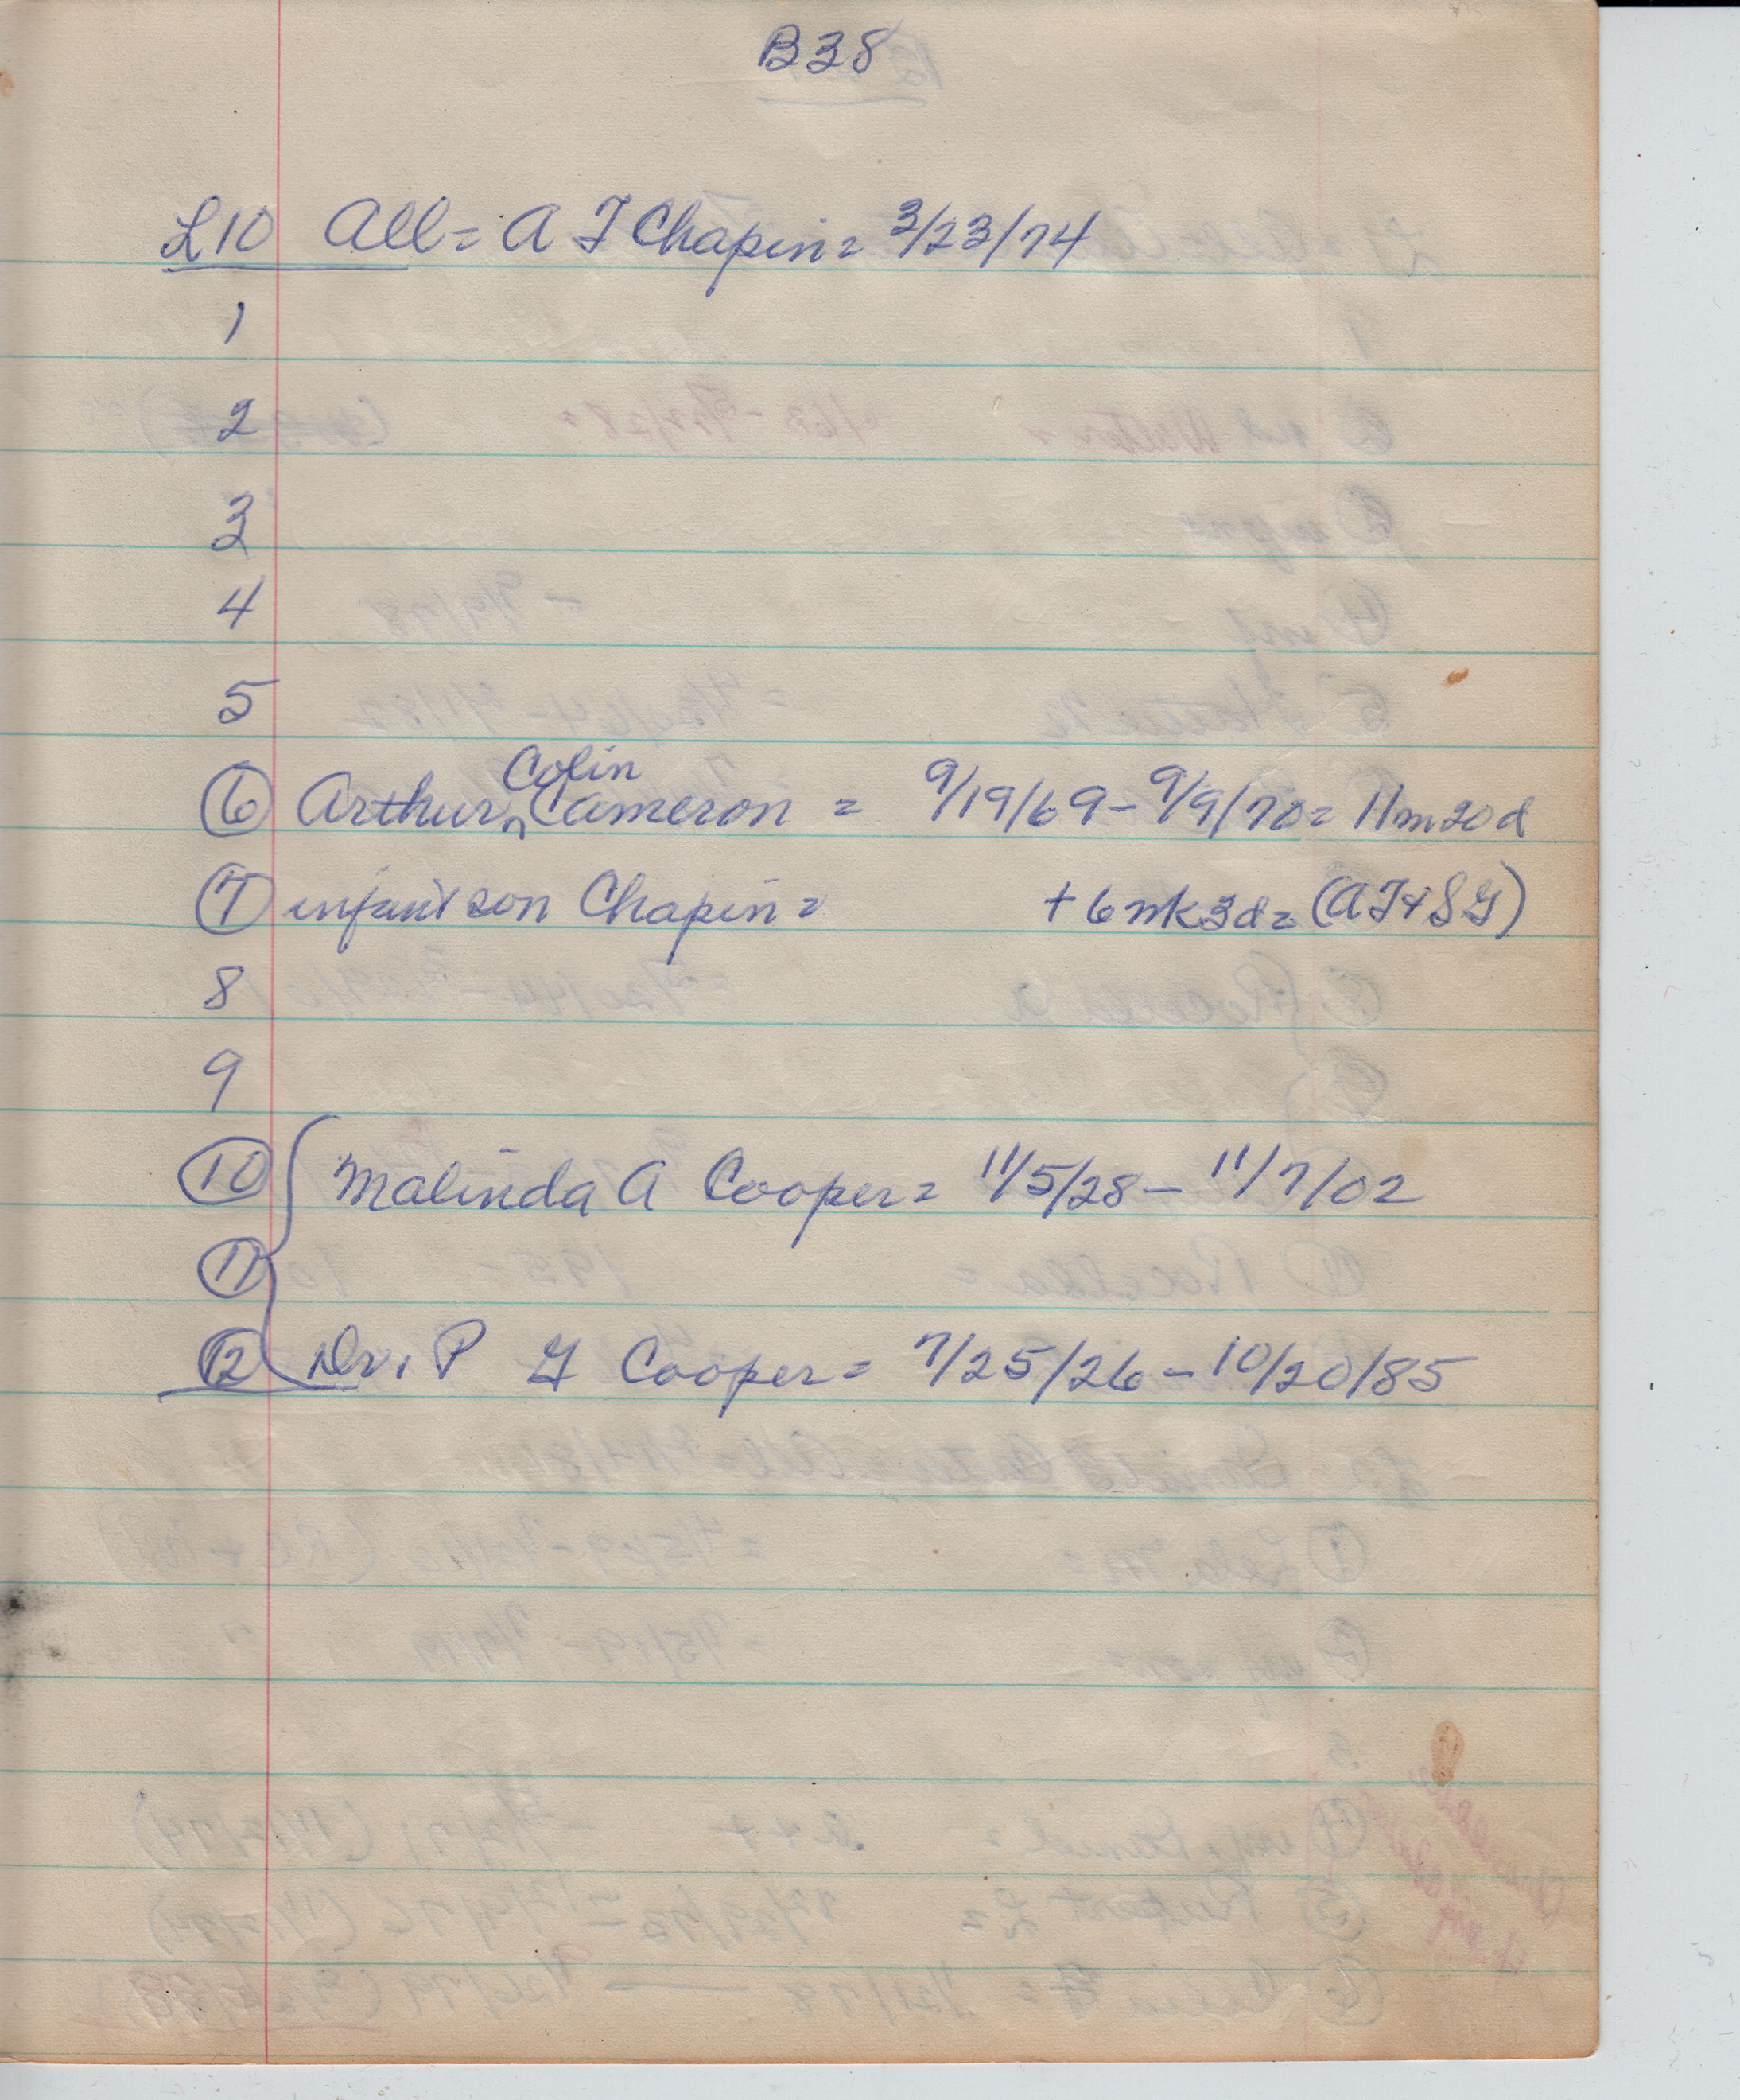 B38
L10 All = A J Chapin = 3/23/74
1
2
3
4
5
Colin
6 Arthur ^ Cameron = 9/19/69 - 9/9/70 = 11m20d
7 infant son Chapin = + 6wk3d = (AJ + SG)
8
9
10 Malinda A Cooper = 11/5/28 - 11/7/02
11
12 Dr. P G Cooper = 7/25/26 - 10/20/85